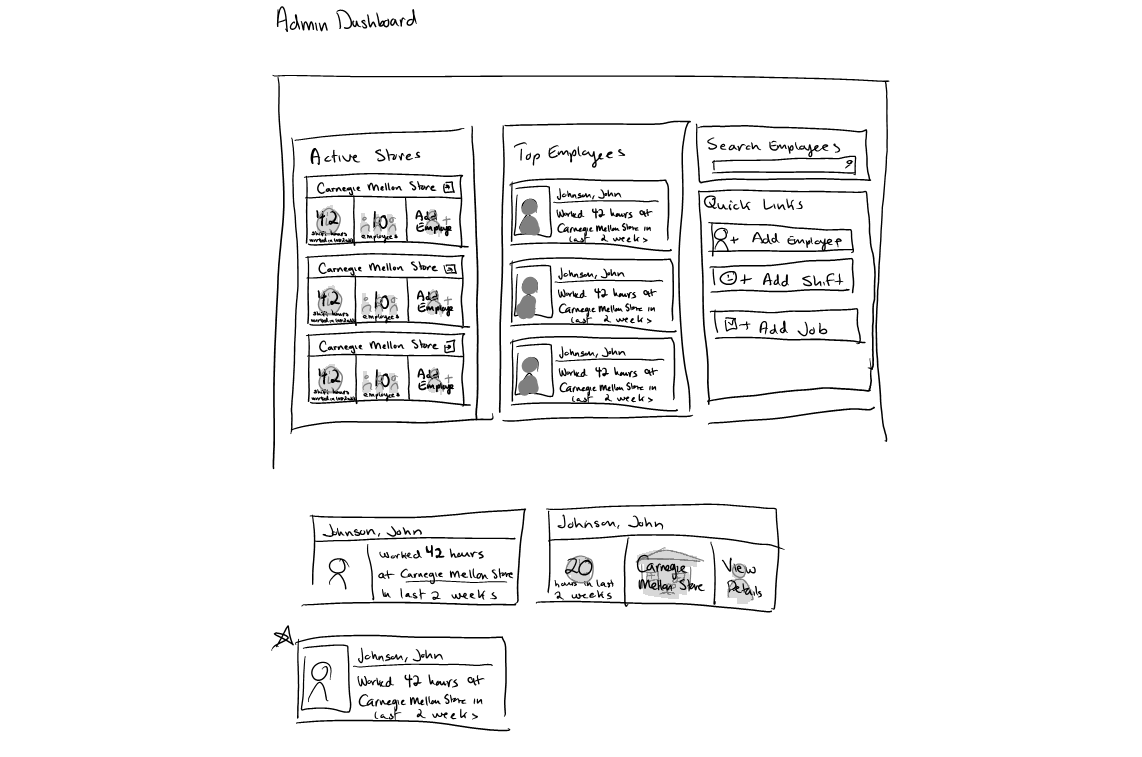 Admin Dashboard
Active Stores
Carnegie Mellon Store
42
shift hours
worked in
10
employees
Add
Employe
Carnegie Mellon Store
42
shift hours
worked in
10
employees
Add
Employe
Carnegie Mellon Store
42
shift hours
worked in
10
employees
Add
Employe
Top Employees
Johnson, John
Worked 42 hours at
Carnegie Mellon Store in
last 2 weeks
Johnson, John
Worked 42 hours at
Carnegie Mellon Store in
last 2 weeks
Johnson, John
Worked 42 hours at
Carnegie Mellon Store in
last 2 weeks
Search Employees
Quick Links
+ Add Employee
+ Add Shift
+ Add Job
Johnson, John
Worked 42 hours
at Carnegie Mellon Store
in last 2 weeks
Johnson, John
20
hours in last
2 weeks
Carnegie
Mellon Store
View
Details
Johnson, John
Worked 42 hours at
Carnegie Mellon Store in
last 2 weeks